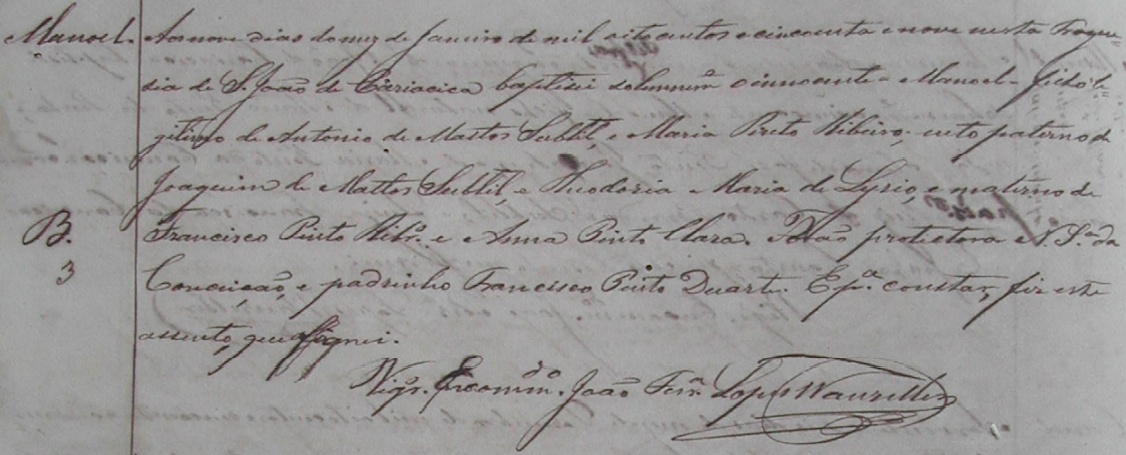 Manoel. Aos nove dias do mez de Janeiro de mil oitocentos e cincoenta e nove nesta Fregue=
sia de S. João de Cariacica baptisei solemnem.e o innocente - Manoel - filho le=
gitimo de Antonio de Mattos Subtil, e Maria Pinto Ribeiro; neto paterno de
Joaquim de Mattos Subtil, e Theodoria Maria de Lyrio, e materno de
B. Francisco Pinto Ribr.o e Anna Pinto Clara. protectora e N. S.ra da
3 Conceição, e padrinho Francisco Pinto Duarte. E p.a constar, fiz este
assento, que assignei.
Vigr.o Encommend.o João Ferr.a Lopes Wanzeller